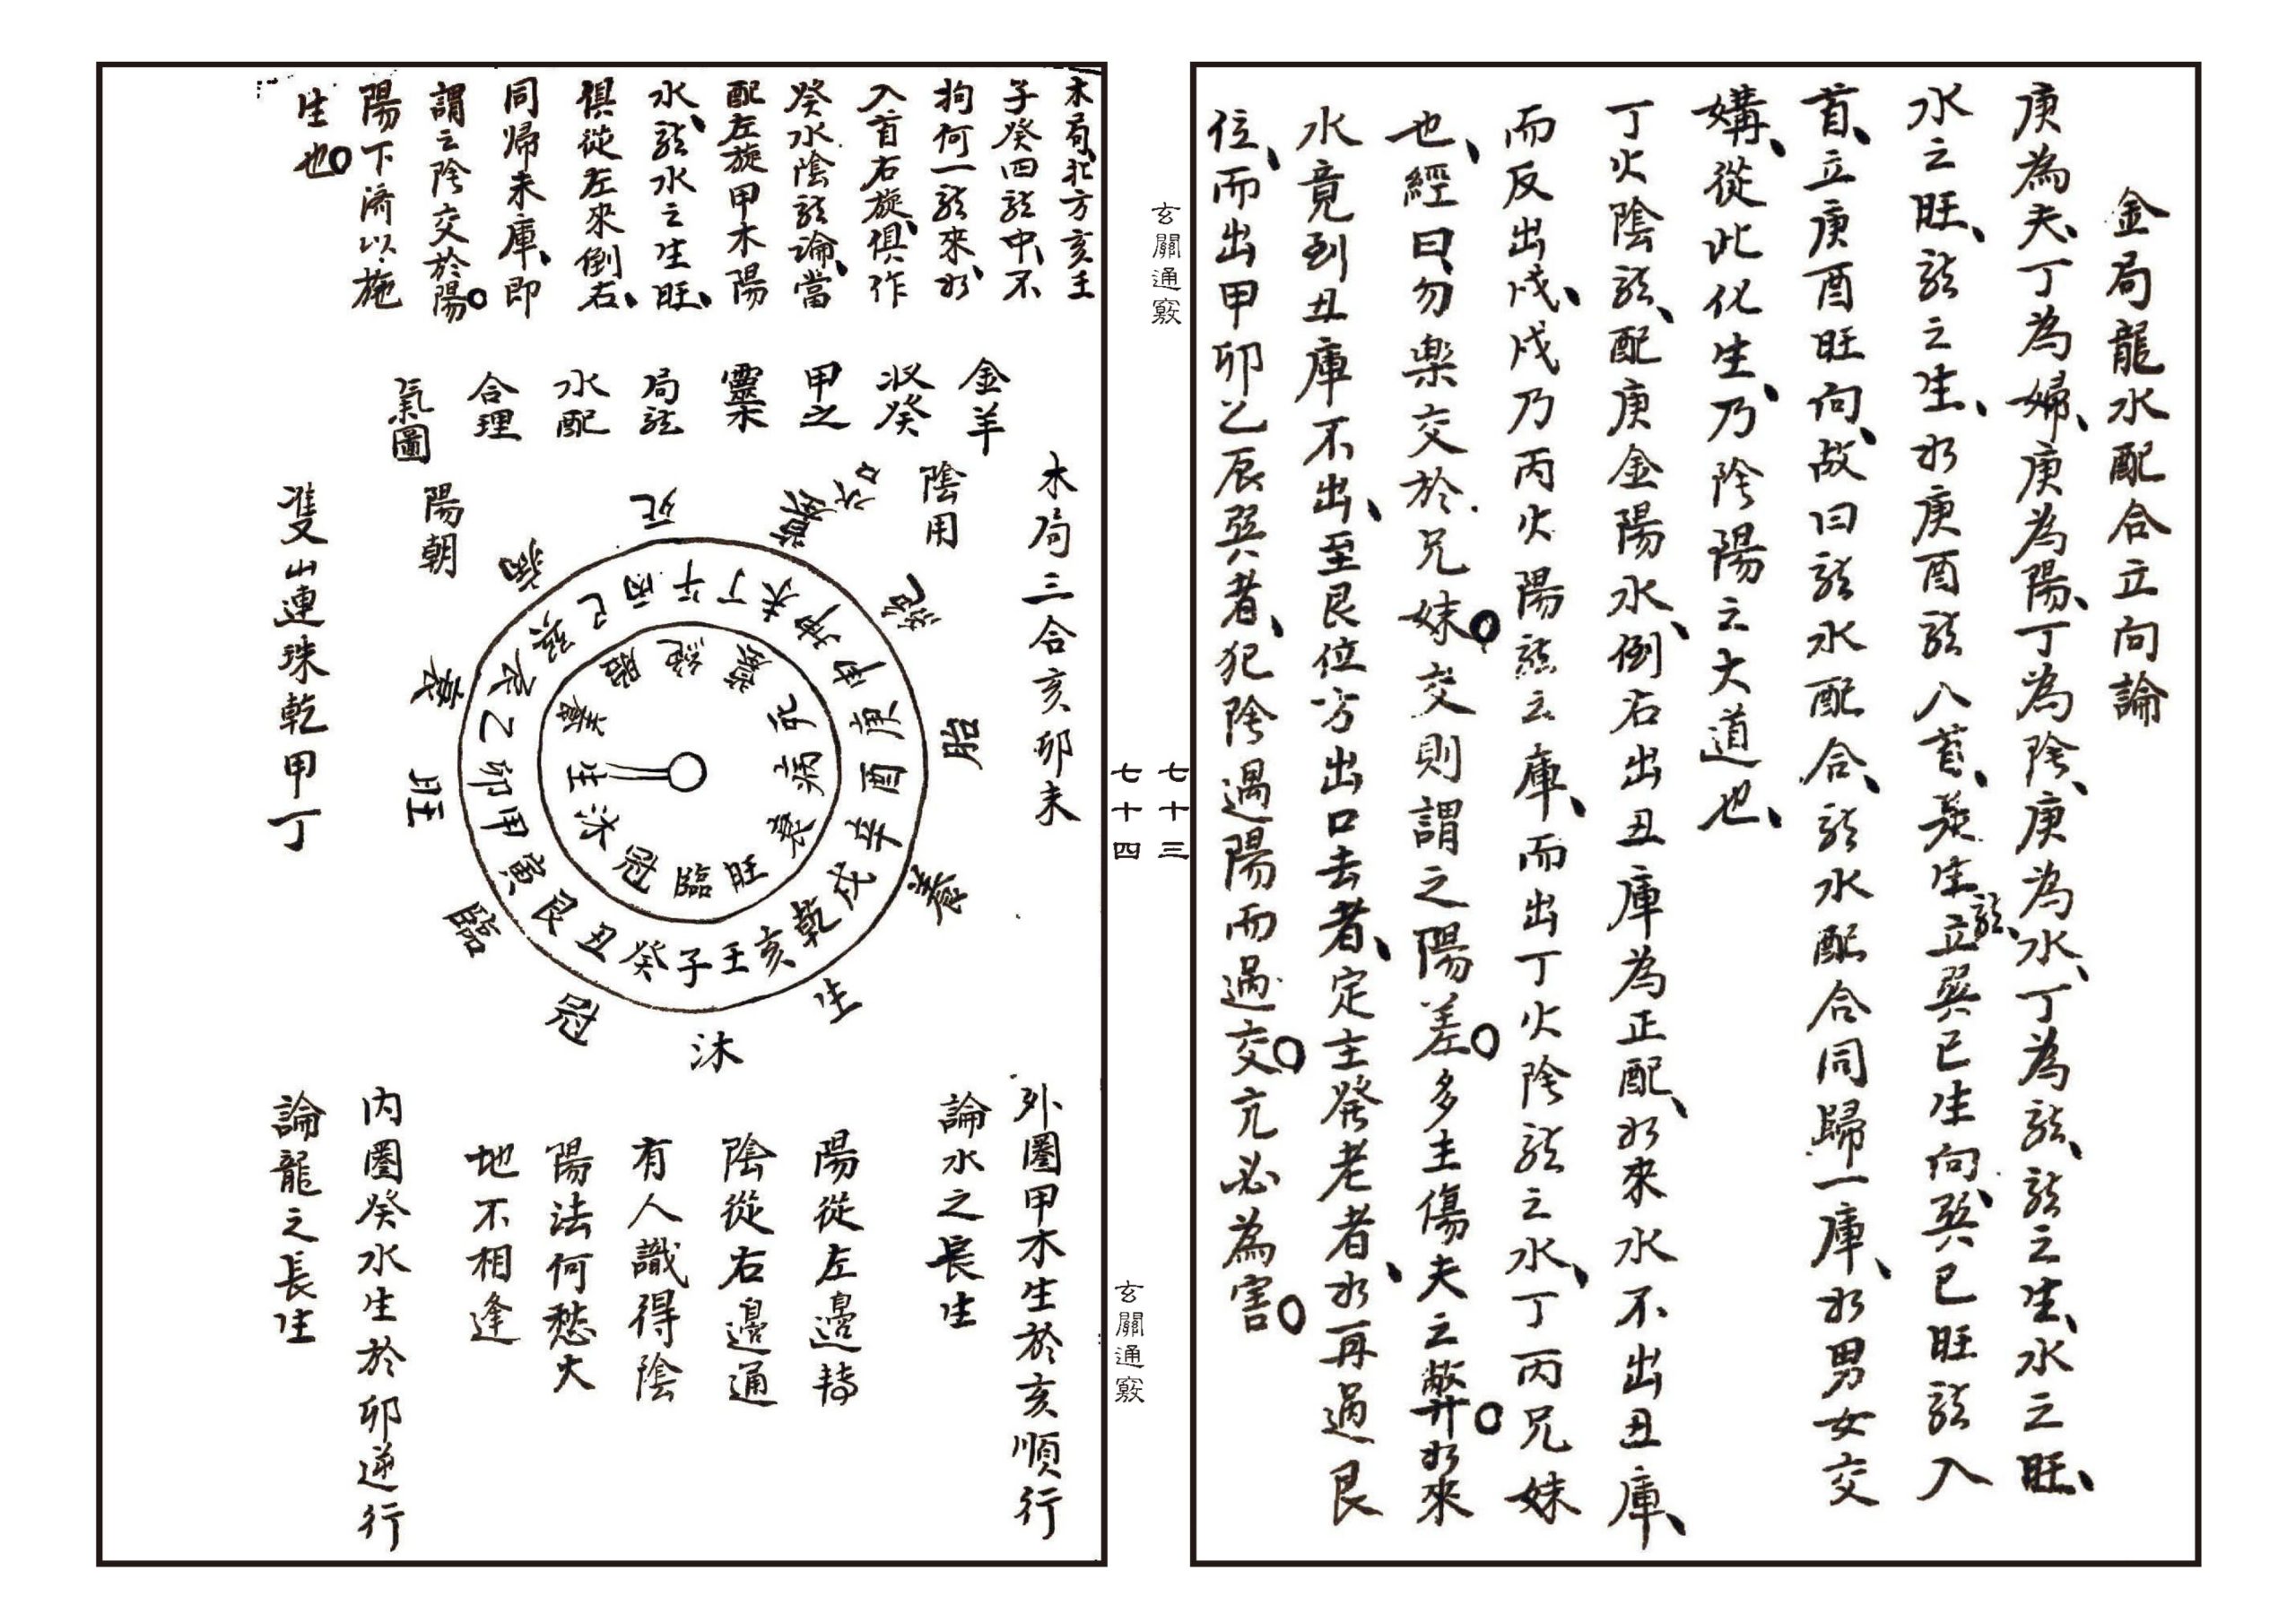 金局龍水配合立向論
庚為夫、丁為婦、庚為陽、丁為陰、庚為水、丁為龍、龍之生、水之旺、
水之旺、龍之生、水庚酉龍八首、癸生龍、立巽巳生向、巽巳旺龍入
首、立庚酉旺向、故曰龍水配合、龍水配合同歸一庫、水男女交
媾、從此化生、乃陰陽之大道也、
丁火陰龍、配庚金陽水、倒右出丑庫為正配、水來水不出丑庫、
而反出戌、戌乃丙火陽龍之庫、而出丁火陰龍之水、丁丙兄妹
也、經曰、勿樂交於兄妹。交則謂之陽差。多主傷夫之弊。水來
水竟到丑庫不出、至艮位方出口去者、定主癸老者、水再過艮
位、而出甲卯乙辰巽者、犯陰遇陽而過交。亢必為害。
玄關通竅
七十三
七十四
玄關通竅
木局、北方亥壬
子癸四龍中、不
拘何一龍來、水
入首右旋、俱作
癸水陰龍論、當
配左旋甲木陽
水、龍水之生旺、
俱從左來倒右、
同歸未庫、即
謂之陰交於陽。
陽下濟以施
生也。
金羊
收癸
甲之
靈
局龍
水配
合理
氣圖
木局三合亥卯未
陰用
陽朝
雙山連珠乾甲丁
死
墓
水口
絕
胎
養
生
沐
冠
臨
旺
衰
病
丙午丁未坤申庚酉辛戌乾亥壬子癸丑艮寅甲卯乙辰巽巳
生沐冠臨旺衰病死墓絕胎養
外圈甲木生於亥順行
論水之長生
陽從左邊轉
陰從右邊通
有人識得陰
陽法何愁大
地不相逢
內圈癸水生於卯逆行
論龍之長生